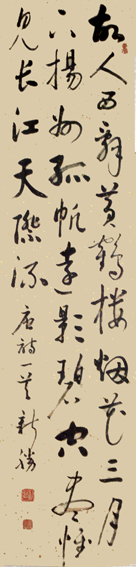 故人西辭黄鶴楼烟花三月
下揚州孤帆遠影碧空盡惟
見长江天際流 唐詩一首 新勝